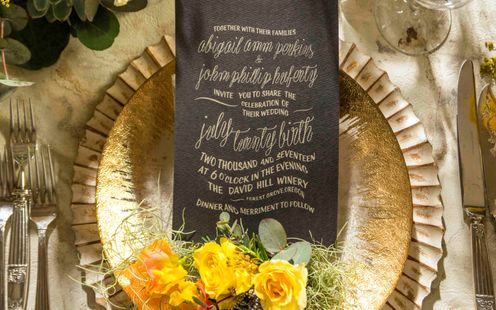 TOGETHER WITH THEIR FAMILIES
abigail ann perkins
&
john phillip haferty
INVITE YOU TO SHARE THE
CELEBRATION OF
THEIR WEDDING
july twenty
TWO THOUSAND AND SEVENTEEN
AT 6 O'CLOCK IN THE EVENING
THE DAVID HILL WINERY
FOREST GROVE, OREGON
DINNER AND MERRIMENT TO FOLLOW